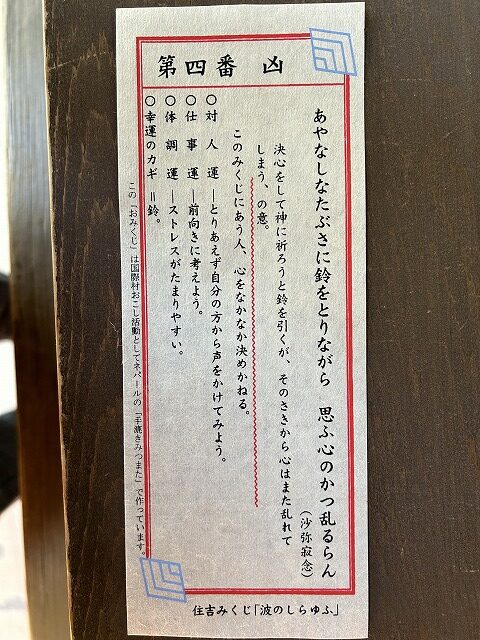 第四番　凶
あやなしなたぶさに鈴をとりながら　思ふ心のかつ乱るらん
（沙弥寂念）
決心をして神に祈ろうと鈴を引くが、そのさきから心はまた乱れて
しまう、の意。
このみくじにあう人、心をなかなか決めかねる。
○対人運―とりあえず自分の方から声をかけてみよう。
○仕事運―前向きに考えよう。
○体調運―ストレスがたまりやすい。
○幸運のカギ＝鈴。
この「おみくじ」は国際村おこし活動としてネパールの「手漉きみつまた」で作っています。
住吉みくじ「波のしらゆふ」